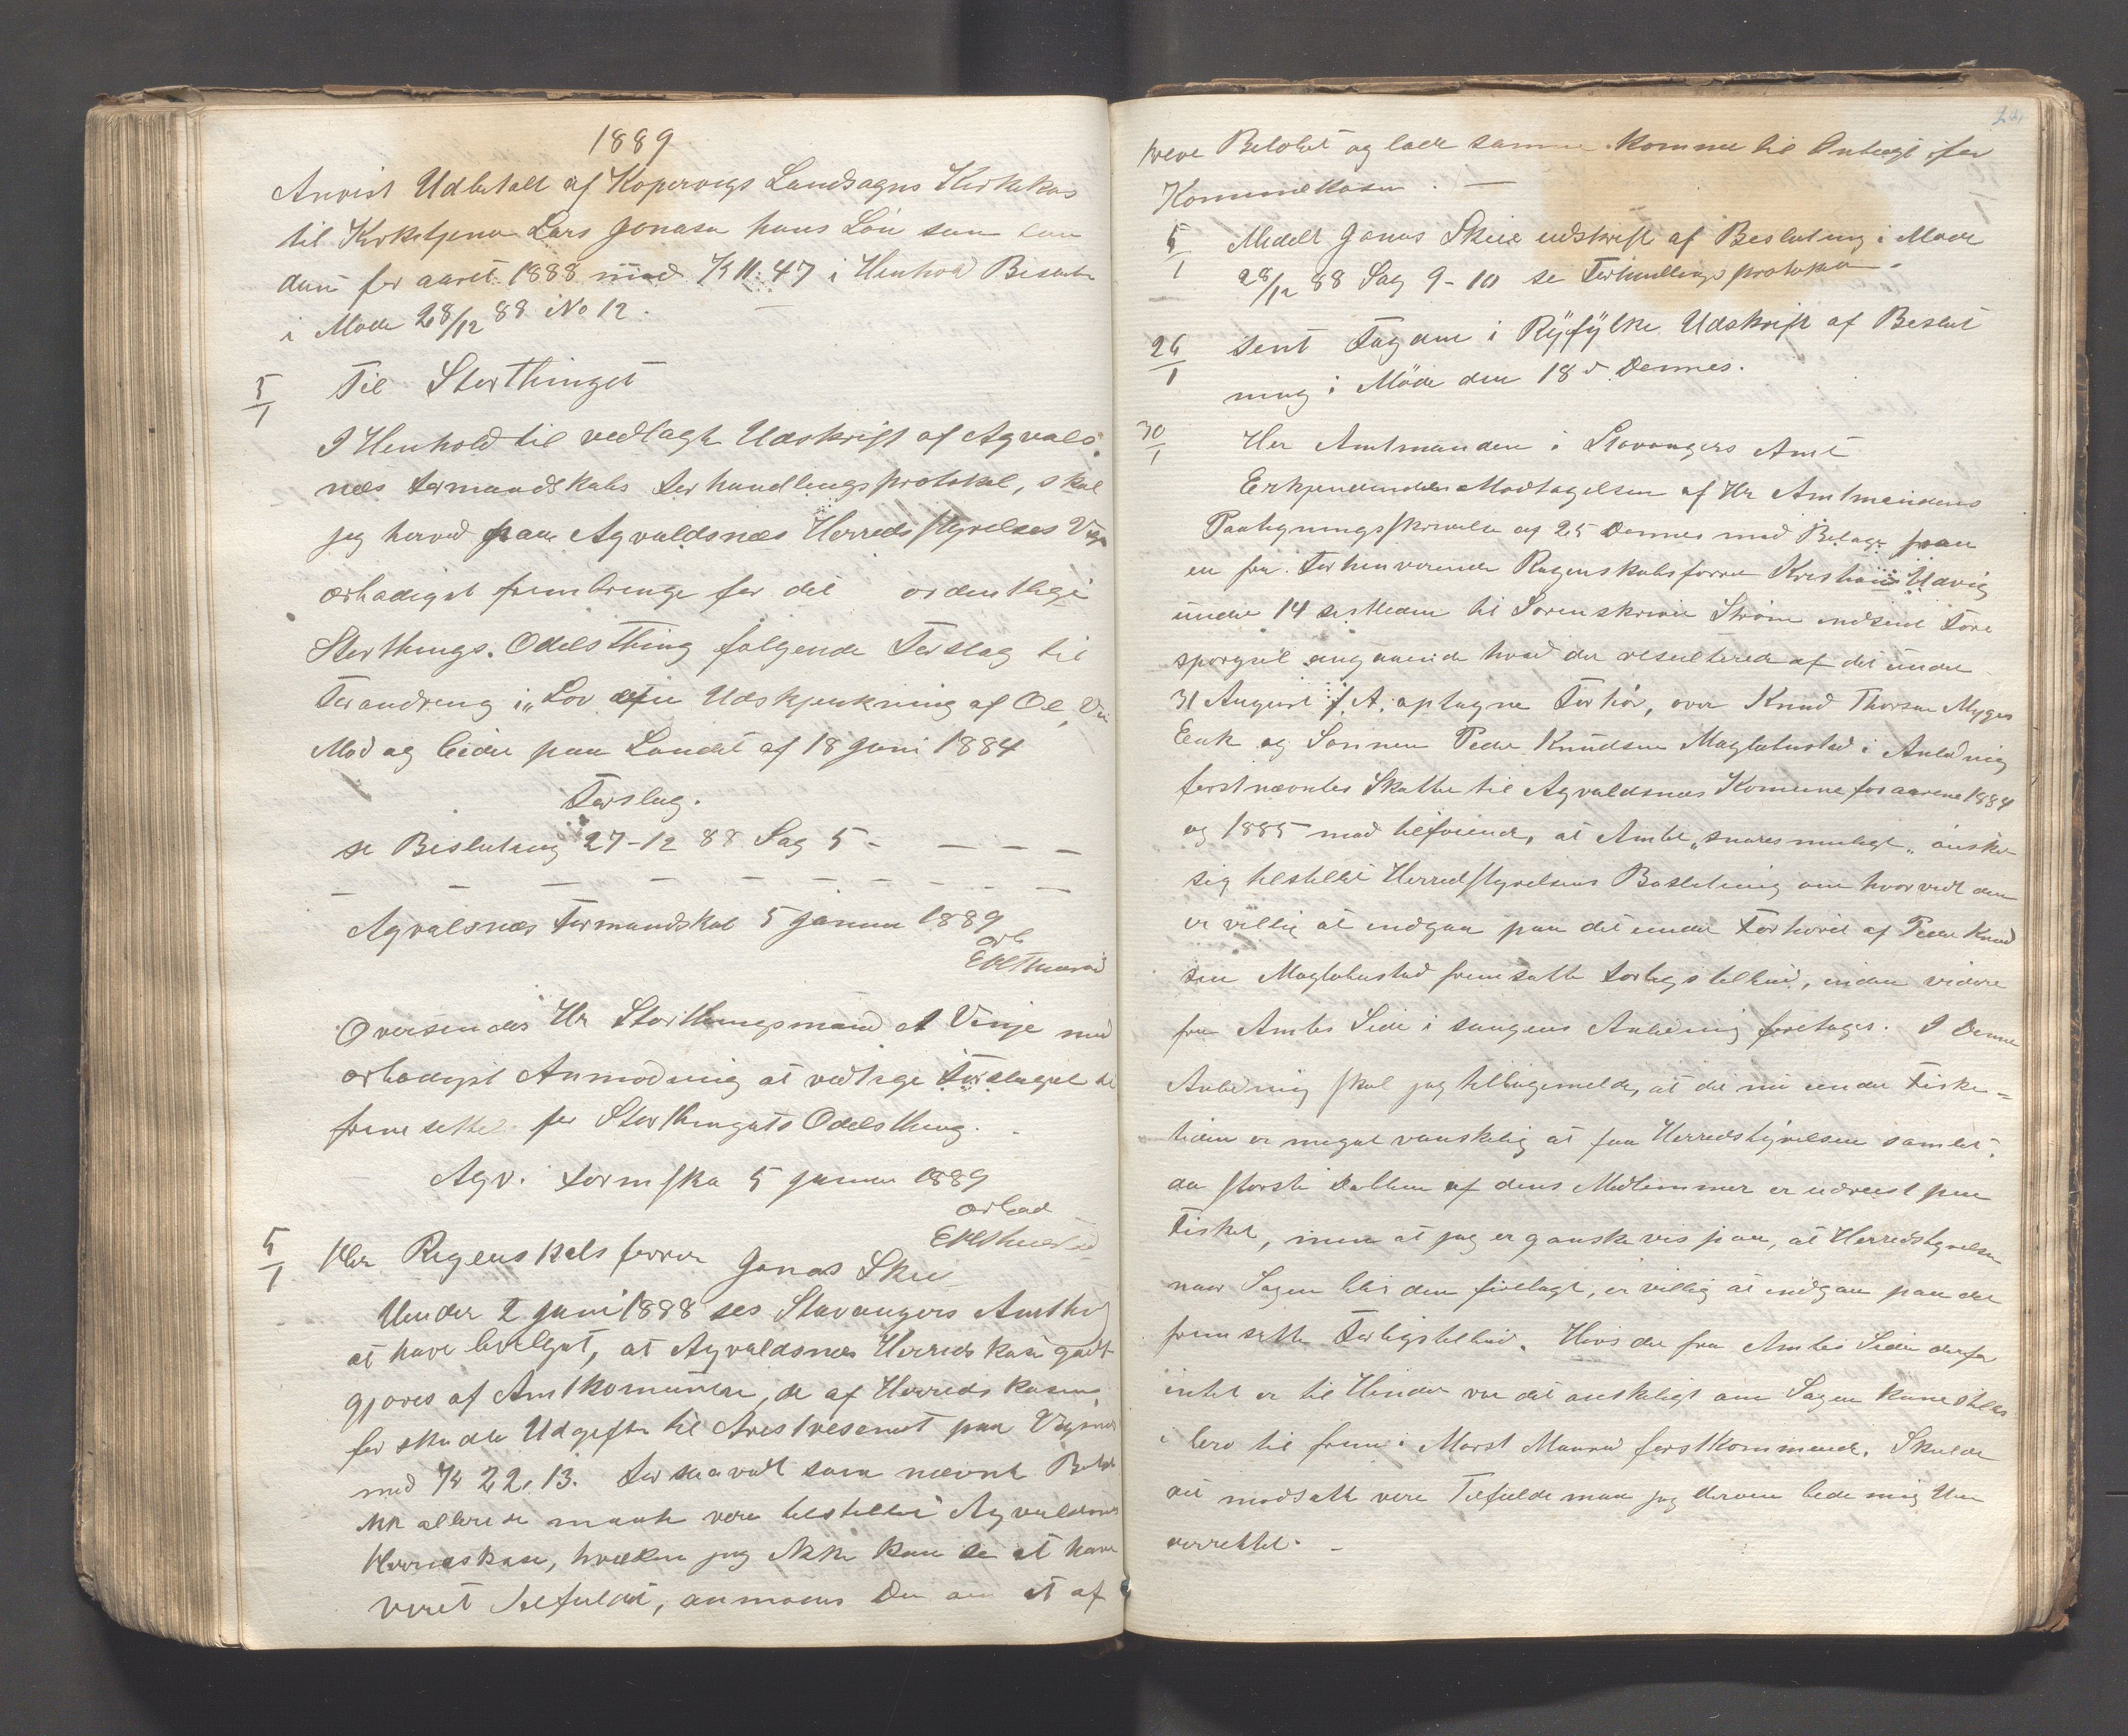 1889
Anvist Udbetalt af Kopervigs Landsogns Kirkekas
til Kirketjener Lars Jonasen hans Løn som saa
dan for aaret 1888 med Kr 11:47 i Henhold Beslut
i Møde 28/12 88 No 12.
5/1 Til Storthinget
I Henhold til vedlagte Udskrift af Agvals
næs Formandskabs Forhandlingsprotokol, skal
jeg herved paa Agvaldsnæs Herredsstyrelses Vegn
ærbødigst frembringe for det ordentlige
Storthings Odelsthing følgende Forslag til
Forandring i "Lov om Udskjenkning af Øl, Vin
Mød og Cider paa Landet af 18 Juni 1884
Forslag.
se Beslutning 27-12 88 Sag 5 - — — —
— — — — — — — — — —
Agvalsnes Formandskab 5 Januar 1889
ærb
Oversendes Hr Storthingsmand A Vinje med
ærbødigst Anmodning at vedtage Forslaget til
fremsettelse for Storthingets Odelsthing.
Agv. Formska 5 Januar 1889
ærbød
5/1 Hr Regenskabsfører Jonas Skeie
Under 2 Juni 1888 ses Stavangers Amthing
at have bevilget, at Agvaldsnes Herredskase godt
gjøres af Amtkomunen, de af Herredskasen
for skudte Udgifter til Arrestvesenet paa
med Kr 22,13. Forsaavidt som nævnte Beløb
ikke allerede maatte være tilstillet Agvaldsnes
Herredskase, hvilken jeg ikke kan se at have
været Tilfeldet, anmodes De om at af
kreve Beløbet og lade samme komme til Indtegt for
Kommunekasen. —
5/1 Meddelt Jonas Skeie udskrift af Beslutning i Møde
28/12 88 Sag 9-10 se Forhandlingsprotokol.
26/1 Sent Fogden i Ryfylke Udskrift af Beslut
ning i Møde den 18 d Dennes.
30/1 Her Amtmanden i Stavangers Amt
Erkjendende Modtagelsen af Hr Amtmandens
Paategningsskrivelse af 25 Dennes med Bilage paa
en fra Forhenverende Regenskabsfører Kristian Udvig
under 14 sistleden til Sorenskriver Strøm indsent Fore
spørgsel angaaende hvad der resulterede af det under
31 August f. A. optagne Forhør, over Knud Thorsen Myge
og Sønnen Peder Knudsen i Anledning
førstnævntes Skatte til Agvaldsnæs Komune for aarene 1884
og 1885 med tilføiende, at Amtet "snares muligt" ønsker
sig tilstillet Herredsstyrelsens Beslutning om hvorvidt den
er villig at indgaa paa det under Forhøret af Peder Knud
sen fremsatte Forligstilbud, inden videre
fra Amtes Side i sagens Anledning foretages. I Denne
Anledning skal jeg tilbagemelde, at det nu under Fiske=
tiden er meget vanskelig at faa Herredstyrelsen samlet,
da største Dellen af dens Medlemmer er udreist paa
Fisket, men at jeg er ganske vis paa, at Herredstyrelsen
naar Sagen blir den forelagt, er villig at indgaa paa det
fremsatte Forligstilbud. Hvis der fra Amtes Side derfor
intet er til Hinder var det ønskeligt om Sagen kune stilles
i bero til frem i Marst Maaned førstkommende. Skulde
det modsatte vere Tilfelde maa jeg derom bede mig Un
derrettet. —